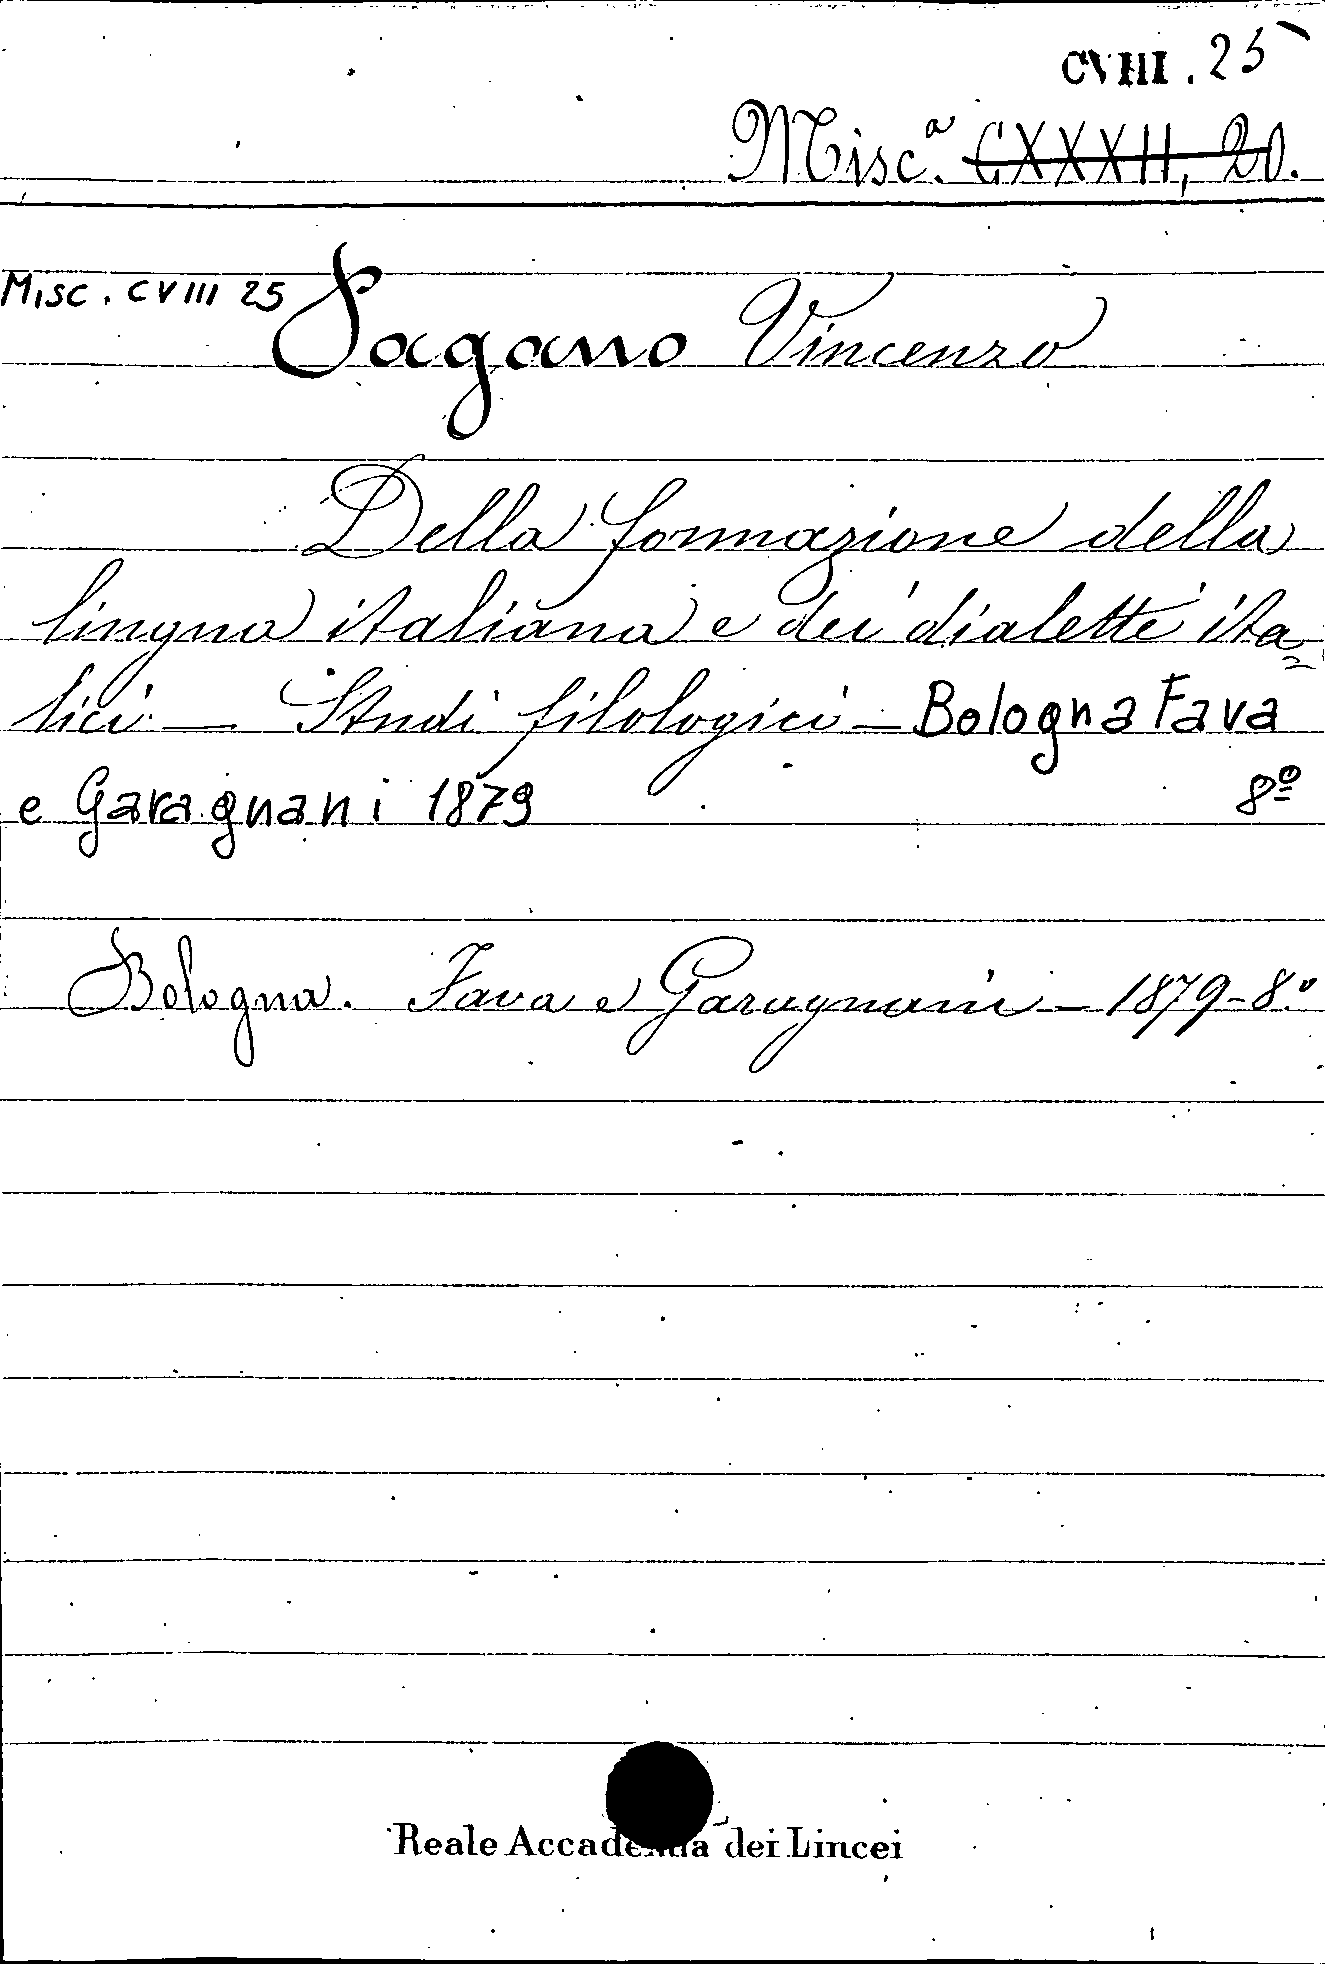 CVIII. 25
Misc.ª CXXXII, 20.
Misc. CVIII 25
Pagano Vincenzo
Della formazione della
lingua italiana e dei dialetti ita=
lici — Studi filologici — Bologna Fava
e Garagnani 1879 8º
Bologna. Fava e Garagnani — 1879 - 8.º
Reale Accademia dei Lincei